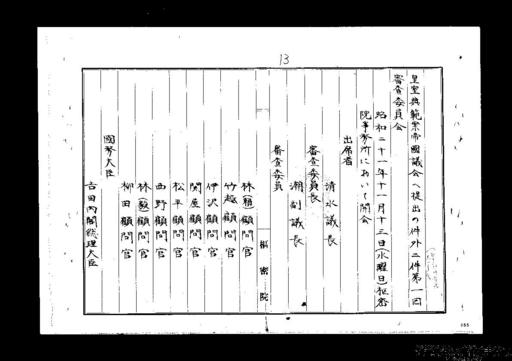 13
皇室典範案帝國議会へ提出の件外二件第一回
審査委員会
昭和二十一年十一月十三日(水曜日)枢密
院事務所において開会
出席者
清水議長
審査委員長
潮副議長
審査委員
林(頼)顧問官
枢密院
竹越顧問官
伊沢顧問官
関屋顧問官
松平顧問官
西野顧問官
林(毅)顧問官
柳田顧問官
國務大臣
吉田内閣総理大臣